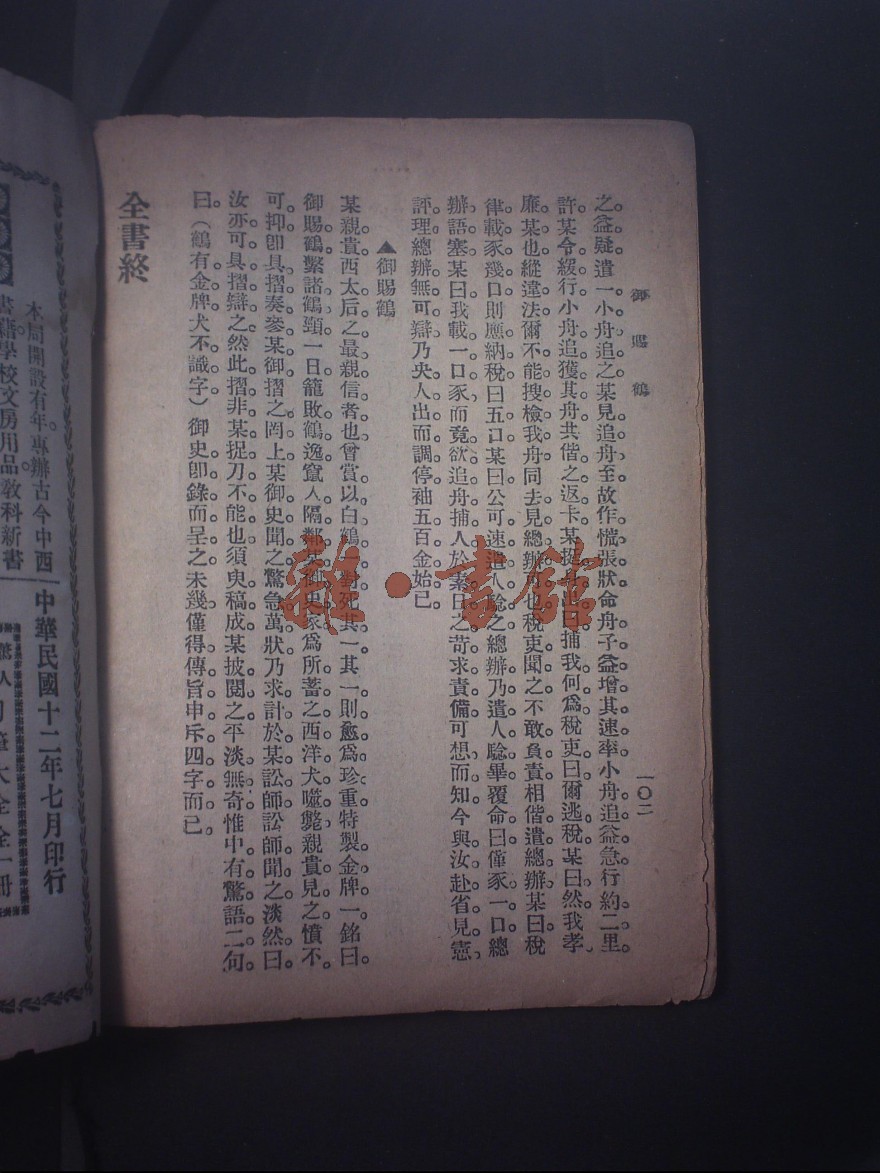 御賜鶴
一〇二
之。益疑。遣一小舟追之。某見追舟至。故作慌張狀。命舟子益增其速率。小舟追益急。行約二里。
許。某令緩行。小舟追獲其舟。共偕之返卡。某挺身出曰。捕我何爲。稅吏曰。爾逃稅。某曰。然。我孝
廉某也。縱違法。爾不能搜檢我舟。同去見總辦可也。稅吏聞之。不敢負責。相偕遣總辦。某曰。稅
律載豕幾口則應納稅。曰五口。某曰。公可速遣人騐之。總辦乃遣人騐畢。覆命曰。僅豕一口。總
辦語塞。某曰。我載一口豕。而竟欲追舟捕人。於素日之苛求責備可想而知。今與汝赴省見憲
評理。總辦無可辯。乃央人出而調停。袖五百金始已。
▲御賜鶴
某親貴西太后之最親信者也。曾賞以白鶴一對。死其一。其一則愈爲珍重。特製金牌一。銘曰。
御賜鶴。繫諸鶴頸。一日籠敗鶴逸。竄入隔鄰某御史家。爲所蓄之西洋犬噬斃。親貴見之。憤不
可抑。卽具摺奏參某御摺之罔上。某御史聞之。驚急萬狀。乃求計於某訟師。訟師聞之。淡然曰。
汝亦可具摺辯之。然此摺非某捉刀不能也。須臾稿成。某披閱之。平淡無奇。惟中有驚語二句
曰。（鶴有金牌犬不識字）御史卽錄而呈之。未幾僅得傳旨申斥四字而已。
全書終
本局開設有年專辦古今中西
書籍學校文房用品敎科新書
中華民國十二年七月印行
人刀筆大全 全一册
雜·書館